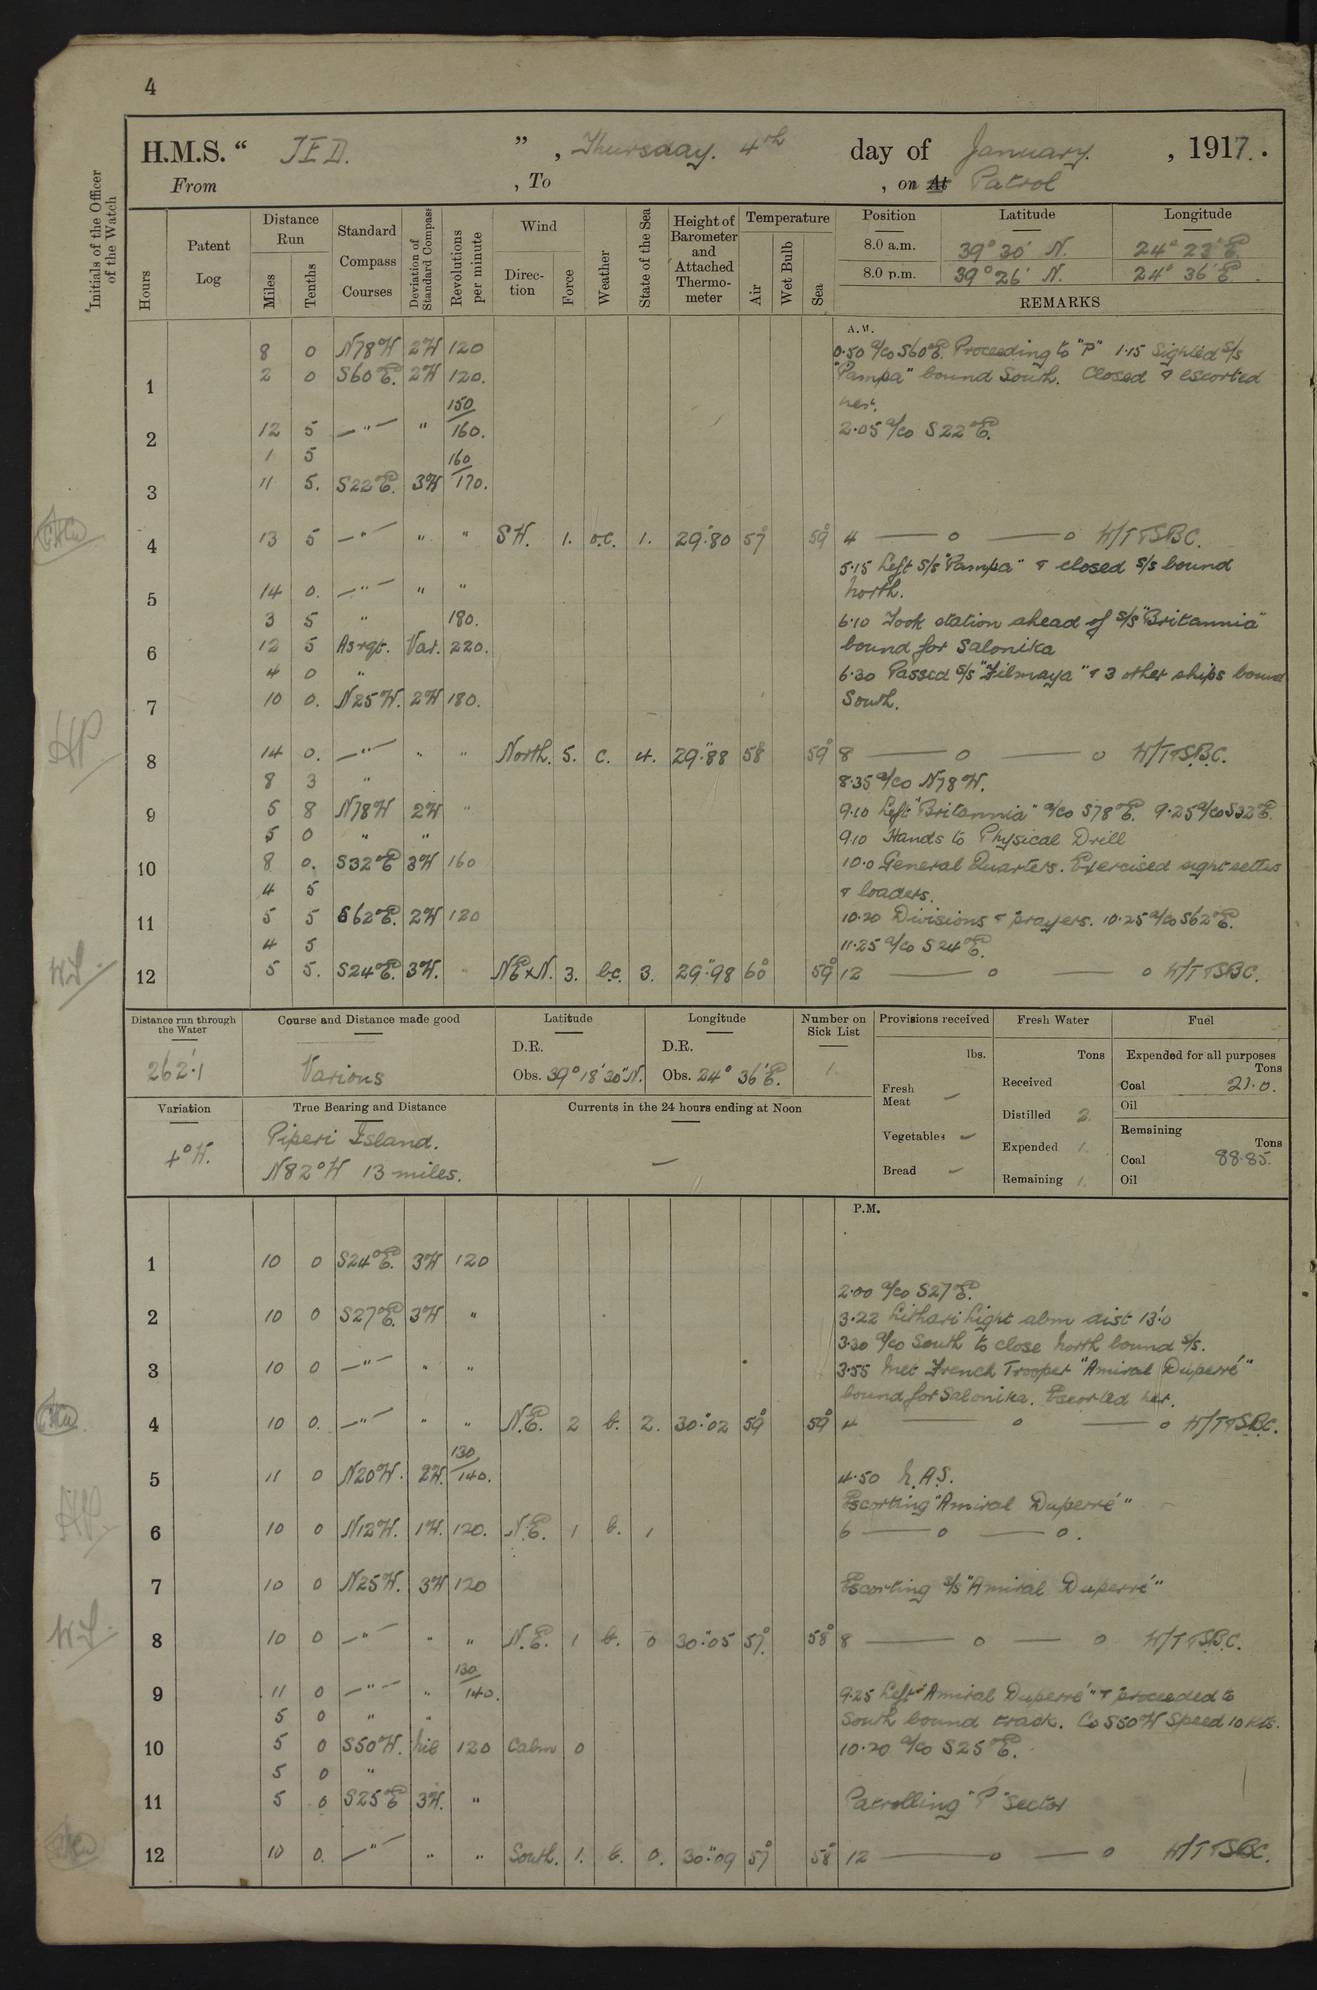 4
H.M.S. " JED. " , Thursday. 4th day of January. , 1917. .
From , To , on At Patrol
Initials of the Officer of the Watch
Hours
Patent Log
Distance Run
Miles
Tenths
Standard Compass Courses
Deviation of Standard Compass
Revolutions per minute
Wind
Direction
Force
Weather
State of the Sea
Height of Barometer and Attached Thermometer
Temperature
Air
Wet Bulb
Sea
Position Latitude Longitude
8.0 a.m. 39° 30' N. 24° 23' E.
8.0 p.m. 39° 26' N. 24° 36' E.
REMARKS
A.M.
8 0 N78°W 2°W 120
0.50 a/co S60°E. Proceeding to "P" 1.15 Sighted s/s
1 2 0 S60°E. 2°W 120.
"Pampa" bound South. Closed & escorted
her.
150
2 12 5 —"— " 160.
2.05 a/co S22°E.
1 5 160
3 11 5. S22°E. 3°W 170.
4 13 5 —"— " " SW. 1. o.c. 1. 29".80 57° 59° 4 — o — o W/T TSBC.
5.15 Left s/s "Pampa" & closed s/s bound
5 14 0. —"— " "
North.
3 5 " 180.
6.10 Took station ahead of s/s "Britannia"
6 12 5 As rqt. Var. 220.
bound for Salonika
4 0 "
6.30 Passed s/s & 3 other ships bound
7 10 0. N25°W. 2°W 180.
South.
8 14 0. —"— " " North. 5. c. 4. 29".88 58° 59° 8 — o — o W/T TSBC.
8 3 "
8.35 a/co N78°W.
9 5 8 N78°W 2°W "
9.10 Left "Britannia" a/co S78°E. 9.25 a/co S32°E.
5 0 " "
9.10 Hands to Physical Drill
10 8 0. S32°E 3°W 160
10.0 General Quarters. Exercised sight setters
4 5
& loaders.
11 5 5 S62°E. 2°W 120
10.20 Divisions & prayers. 10.25 a/co S62°E.
4 5
11.25 a/co S24°E.
12 5 5. S24°E. 3°W. " NE x N. 3. bc. 3. 29".98 60° 59° 12 — o — o W/T TSBC.
Distance run through the Water
262'.1
Course and Distance made good
Various
Latitude
D.R.
Obs. 39° 18' 30" N.
Longitude
D.R.
Obs. 24° 36' E.
Number on Sick List
1.
Provisions received
lbs.
Fresh Meat —
Vegetables —
Bread —
Fresh Water
Tons
Received
Distilled 2.
Expended 1.
Remaining 1.
Fuel
Expended for all purposes
Tons
Coal 21.0.
Oil
Remaining
Tons
Coal 88.85.
Oil
Variation
4° W.
True Bearing and Distance
Piperi Island.
N82°W 13 miles.
Currents in the 24 hours ending at Noon
—
P.M.
1 10 0 S24°E. 3°W 120
2.00 a/co S27°E.
2 10 0 S27°E. 3°W "
3.22 Lithari Light abm dist 13'.0
3.30 a/co South to close North bound s/s.
3 10 0 —"— " "
3.55 Met French Trooper "Amiral Duperré"
bound for Salonika. Escorted her.
4 10 0. —"— " " N.E. 2 b. 2. 30".02 59° 59° 4 — o — o W/T TSBC.
130
5 11 0 N20°W. 2°W. 140.
4.50 N.A.S.
Escorting "Amiral Duperré"
6 10 0 N12°W. 1°W. 120. N.E. 1 b. 1 6 — o — o.
7 10 0 N25°W. 3°W 120
Escorting s/s "Amiral Duperré"
8 10 0 —"— " " N.E. 1 b. 0 30".05 57° 58° 8 — o — o W/T TSBC.
130
9 11 0 —"— " 140.
9.25 Left "Amiral Duperré" & proceeded to
5 0 " "
South bound track. Co S50°W Speed 10 Kts.
10 5 0 S50°W. nil 120 Calm 0
10.20 a/co S25°E.
5 0 "
11 5 0 S25°E 3°W. "
Patrolling "P" Sector
12 10 0. —"— " " South. 1. b. 0. 30".09 57° 58° 12 — o — o W/T TSBC.